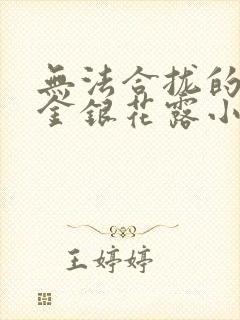 無法合拢的
金銀花露小
王婷婷